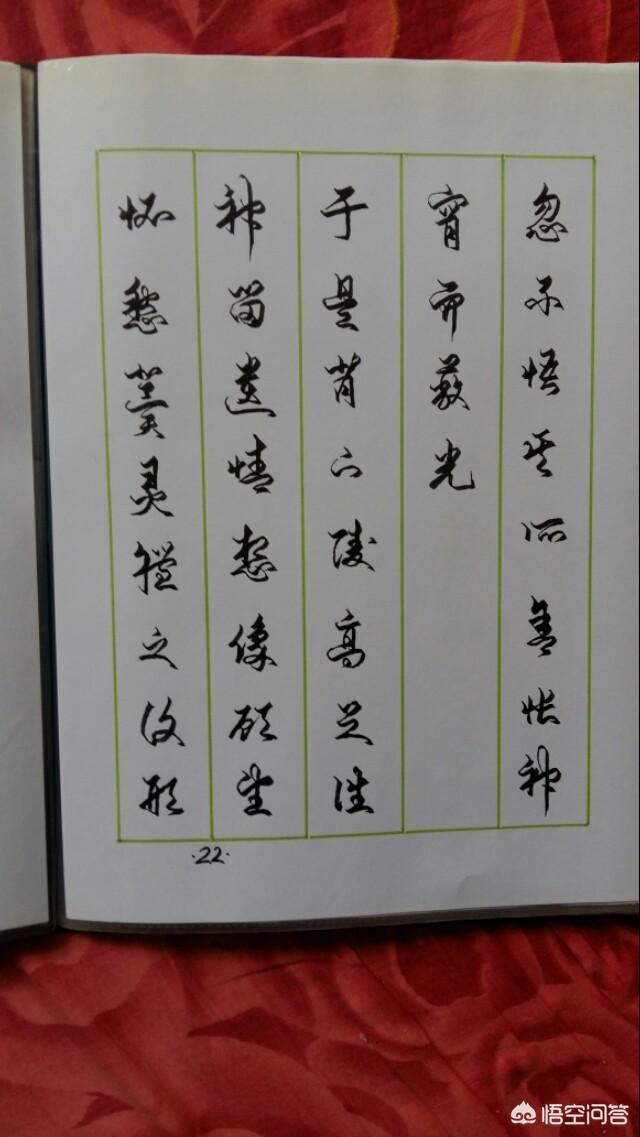 忽不悟其所舍怅神
宵而蔽光
于是背下陵高足往
神留遗情想像顾望
怀愁冀灵體之复形
·22·
悟空问答